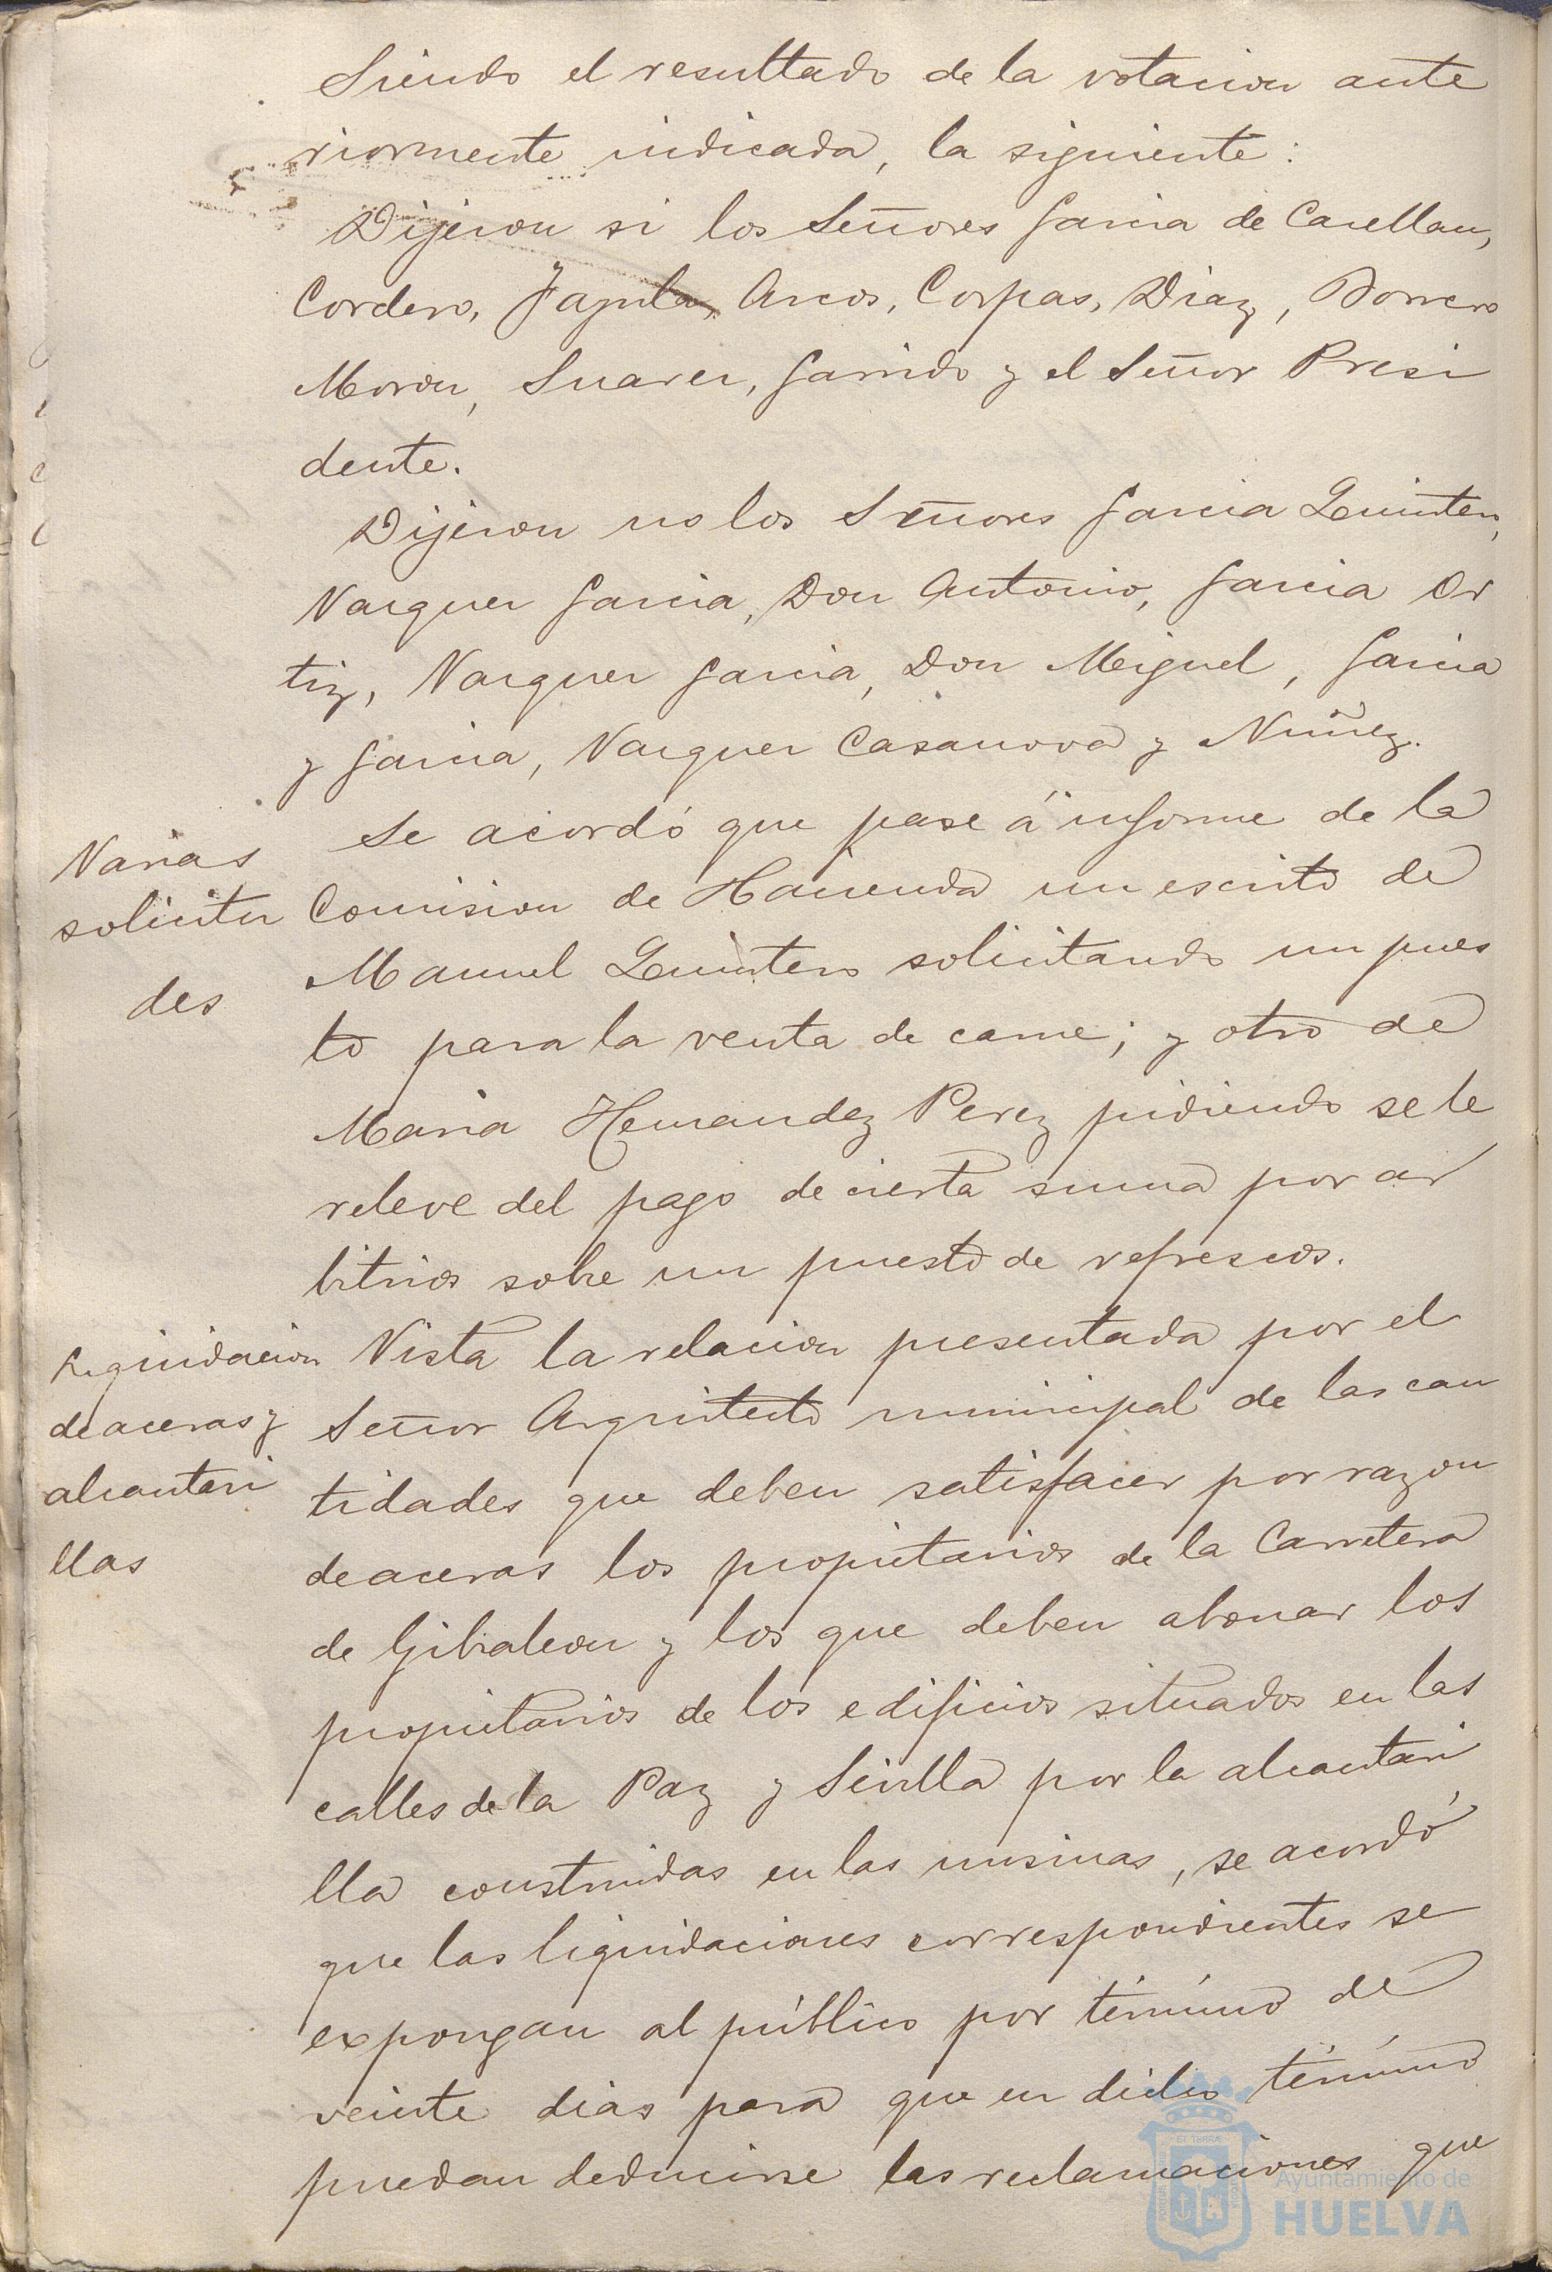 Siendo el resultado de la votacion ante
riormente indicada, la siguiente:
Dijeron si los Señores Garcia de Casellau,
Cordero, Arcos, Corpas, Diaz, Borrero
Moron, Suarez, Garrido y el Señor Presi
dente.
Dijeron no los Señores Garcia Quintero,
Vazquez Garcia, Don Antonio, Garcia Or
tiz, Vazquez Garcia, Don Miguel, Garcia
y Garcia, Vazquez Casanova y Nuñez.
Varias
solicitu
des
Se acordó que pase á informe de la
Comision de Hacienda un escrito de
Manuel Quintero solicitando un pues
to para la venta de carne; y otro de
Maria Hernandez Perez pidiendo se le
releve del pago de cierta suma por ar
bitrios sobre un puesto de refrescos.
Liquidacion
de aceras y
alcantari
llas
Vista la relacion presentada por el
Señor Arquitecto municipal de las can
tidades que deben satisfacer por razon
de aceras los propietarios de la Carretera
de Gibraleon y los que deben abonar los
propietarios de los edificios situados en las
calles de la Paz y Sevilla por la alcantari
lla construidas en las mismas, se acordó
que las liquidaciones correspondientes se
expongan al público por término de
veinte dias para que en dicho término
puedan deducirse las reclamaciones que
Ayuntamiento de
HUELVA